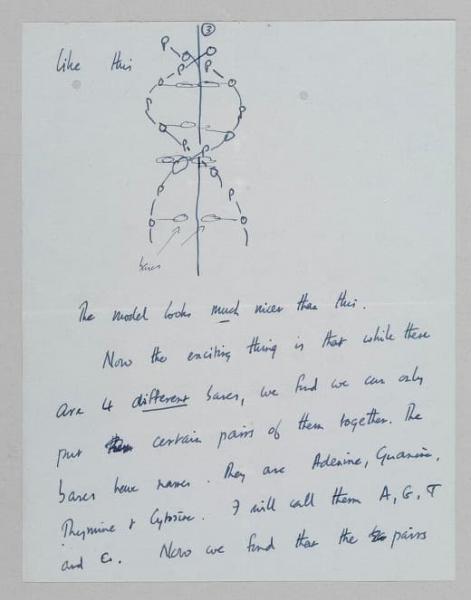 3
like this
P
P P
P P
P P
P P
bases
The model looks much nicer than this.
Now the exciting thing is that while there
are 4 different bases, we find we can only
put certain pairs of them together. The
bases have names. They are Adenine, Guanine,
Thymine & Cytosine. I will call them A, G, T
and C. Now we find that the pairs